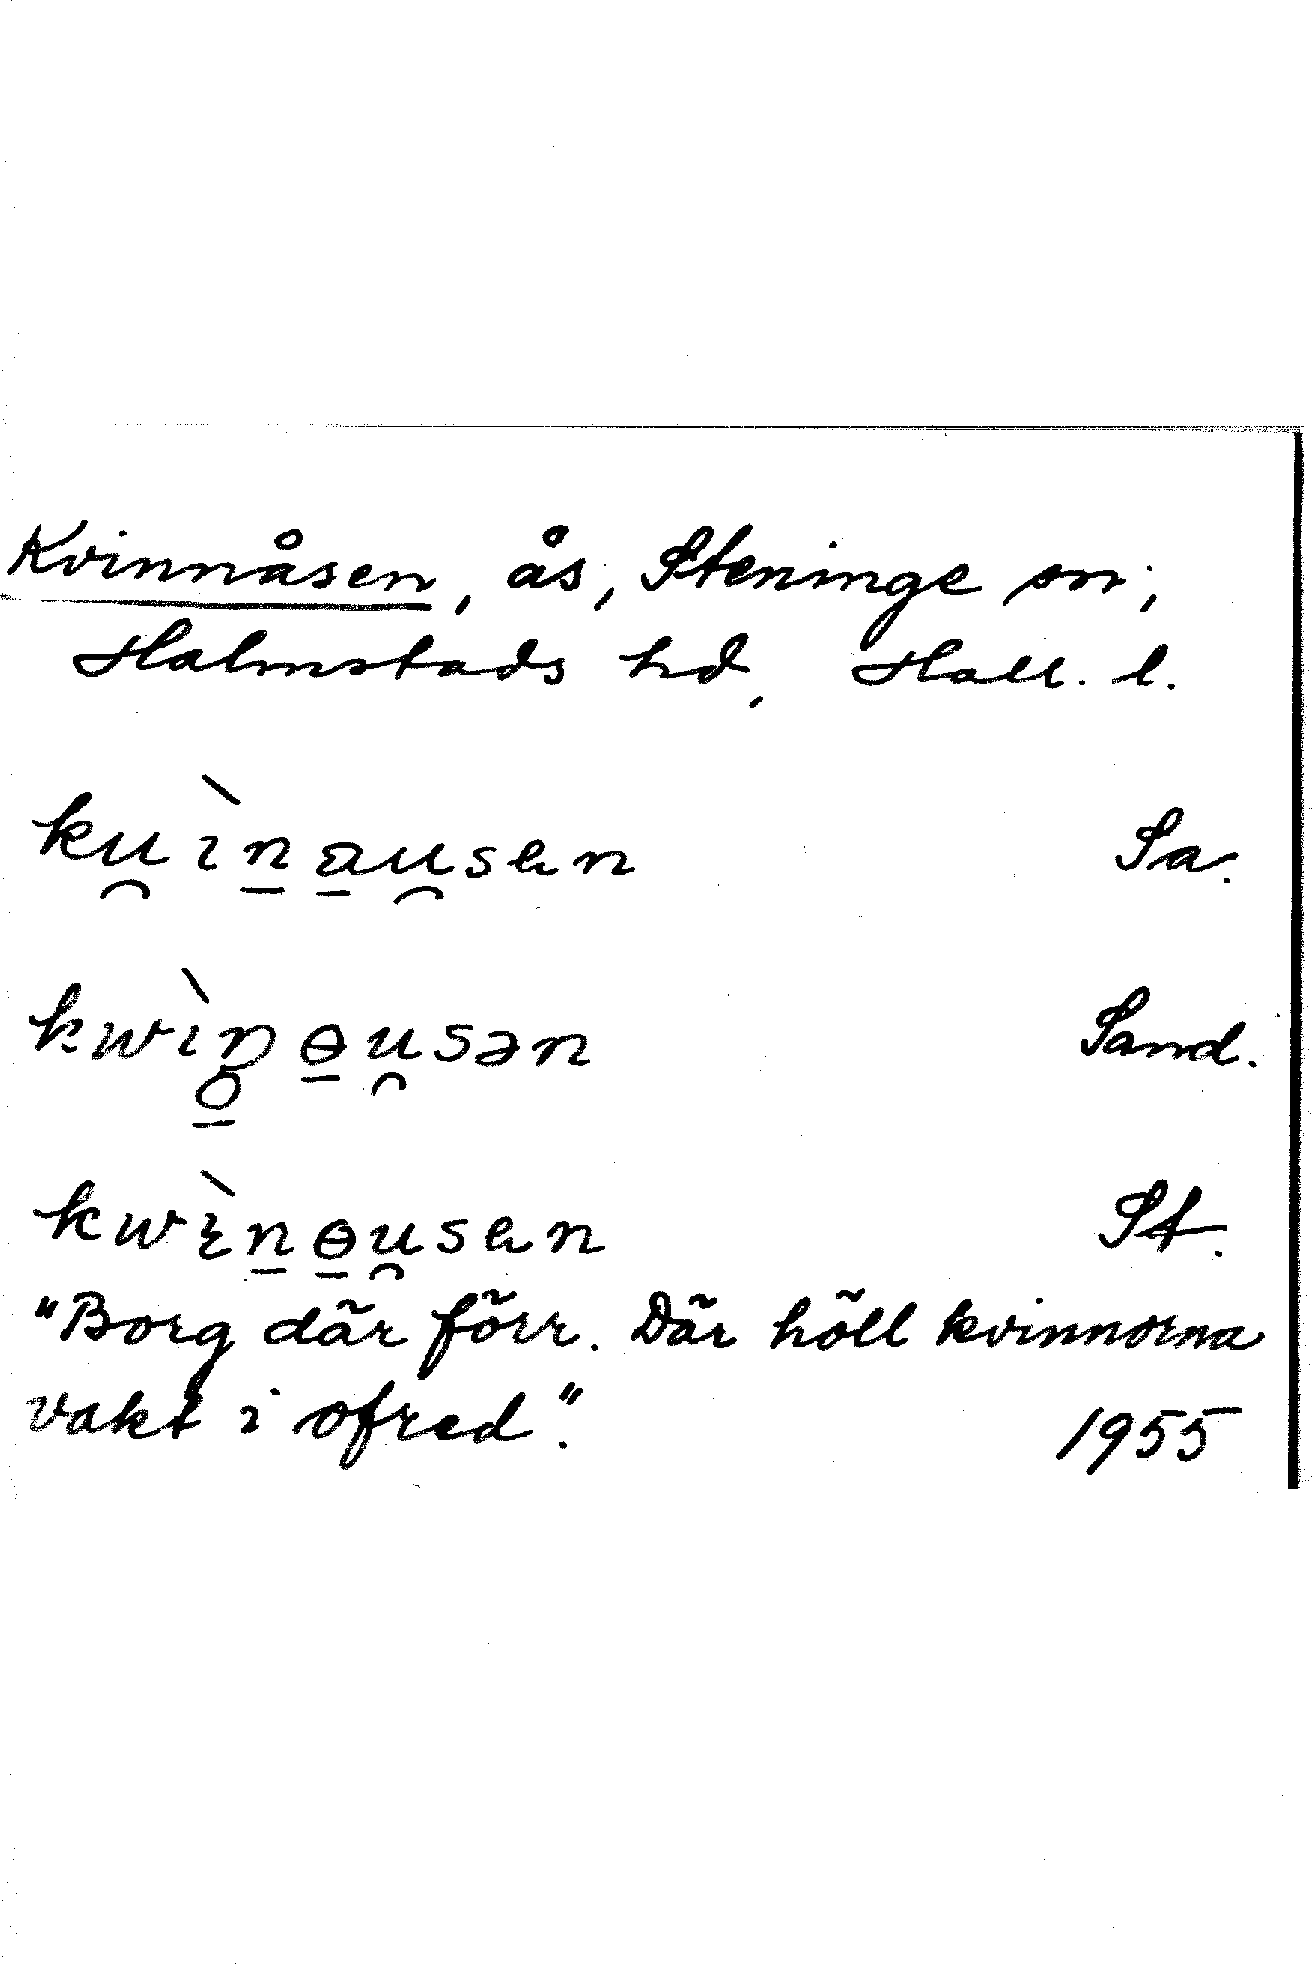 Kvinnåsen, ås, Steninge sn,
Halmstads hd, Hall. l.
ku̯ìn̲a̲u̯sen Sa.
kwìn̥̲ɵ̲u̯sən Sand.
kwìn̲ɵ̲u̯sen St.
"Borg där förr. Där höll kvinnorna
vakt i ofred". 1955